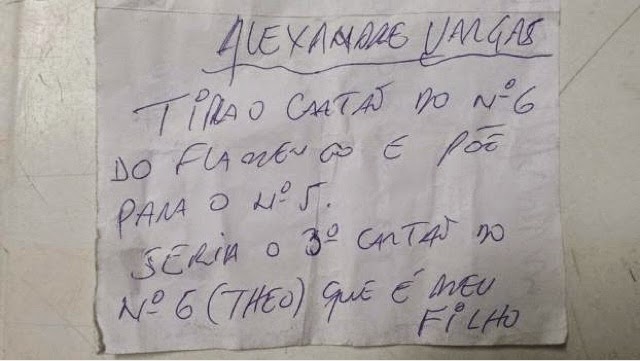 ALEXANDRE VARGAS
TIRA O CARTÃO DO Nº 6
DO FLAMENGO E PÕE
PARA O Nº 5.
SERIA O 3º CARTÃO DO
Nº 6 (THEO) QUE É MEU
FILHO